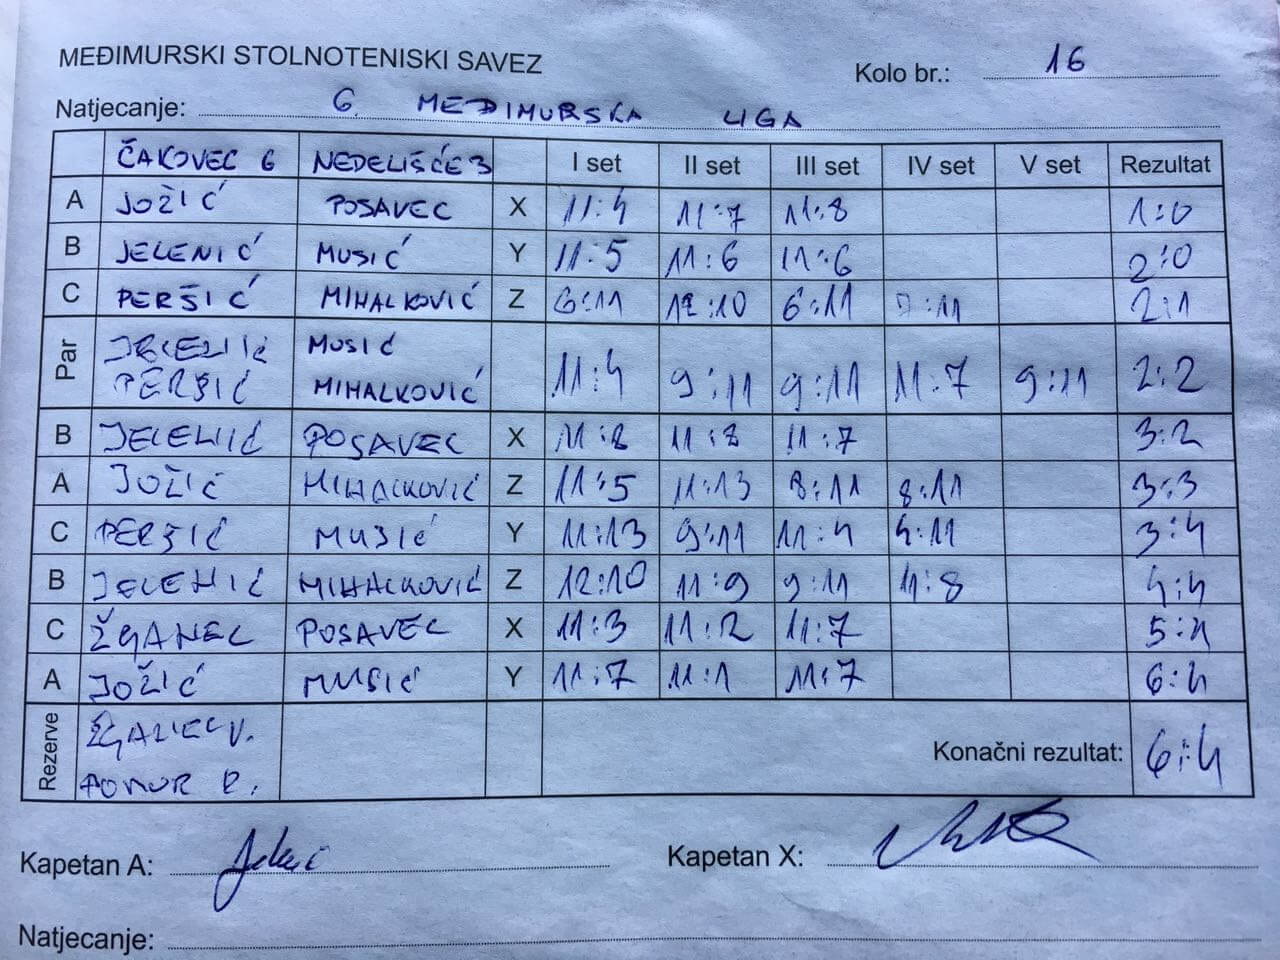 MEĐIMURSKI STOLNOTENISKI SAVEZ
Kolo br.: 16
Natjecanje: 6. MEĐIMURSKA LIGA
ČAKOVEC 6 NEDELIŠĆE 3 I set II set III set IV set V set Rezultat
A JOŽIĆ POSAVEC X 11:4 11:7 11:8 1:0
B JELENIĆ MUSIĆ Y 11:5 11:6 11:6 2:0
C PERŠIĆ MIHALKOVIĆ Z 6:11 12:10 6:11 7:11 2:1
Par JELENIĆ MUSIĆ
PERŠIĆ MIHALKOVIĆ 11:4 9:11 9:11 11:7 9:11 2:2
B JELENIĆ POSAVEC X 11:8 11:8 11:7 3:2
A JOŽIĆ MIHALKOVIĆ Z 11:5 11:13 8:11 8:11 3:3
C PERŠIĆ MUSIĆ Y 11:13 9:11 11:4 4:11 3:4
B JELENIĆ MIHALKOVIĆ Z 12:10 11:9 9:11 11:8 4:4
C ŽGANEC POSAVEC X 11:3 11:2 11:7 5:4
A JOŽIĆ MUSIĆ Y 11:7 11:1 11:7 6:4
Rezerve ŽGANEC V.
Konačni rezultat: 6:4
Kapetan A:
Kapetan X:
Natjecanje: